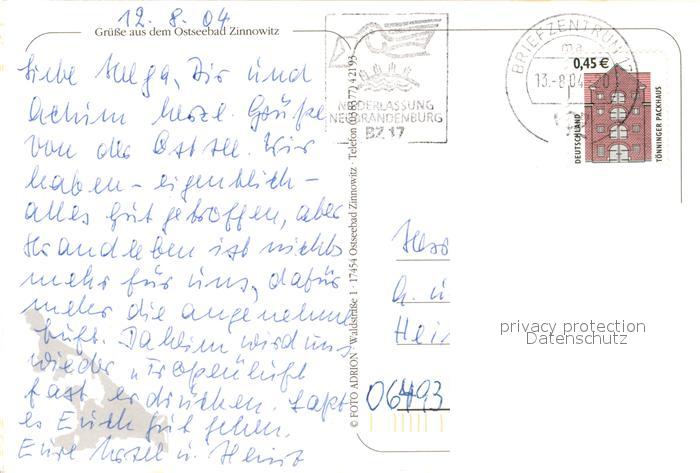 12.8.04
Grüße aus dem Ostseebad Zinnowitz
Liebe Helga, Dir und
Achim herzl. Grüße
von der Ostsee. Wir
haben - eigentlich -
alles gut getroffen, aber
Strandleben ist nichts
mehr für uns, dafür
mehr die angenehme
Luft. Daheim wird uns
wieder "Tropenluft
fast erdrücken. Laßt
es Euch gut gehen.
Eure u. Heinz
© FOTO ADRION · Waldstraße 1 · 17454 Ostseebad Zinnowitz · Telefon (038377) 42193
NIEDERLASSUNG
NEUBRANDENBURG
BZ 17
BRIEFZENTRUM 17
ma
13.-8.04
0,45 €
DEUTSCHLAND
TÖNNINGER PACKHAUS
Herr
Hein
06493
privacy protection
Datenschutz